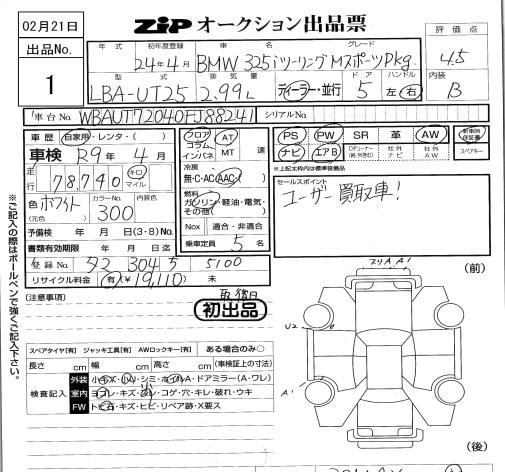 02月21日
ZIP オークション出品票
出品No.
1
年式
初年度登録
車名
グレード
評価点
24年4月
BMW 325iツーリング Mスポーツpkg.
4.5
型式
排気量
ドア
ハンドル
内装
LBA-UT25
2.99L
ディーラー・並行
5
左・右
B
車台No.
WBAUT72040FJ88241
シリアルNo.
車歴
自家用・レンタ・( )
車検
R9年 4月
走行
78,740
キロ
マイル
色
ホワイト
(元色 )
カラーNo.
300
内装色
予備検 年 月 日(3・8)No.
書類有効期限 年 月 日迄
登録No.
リサイクル料金
有(¥19,110)
未
フロア
コラム
インパネ
AT
MT
速
冷房
無・C・AC・AAC
燃料
ガソリン・軽油・電気・
その他( )
Nox
適合・非適合
乗車定員
5
名
PS
PW
SR
革
AW
新車時
保証書
ナビ
エアB
社外
ナビ
社外
AW
スペアキー
※上記太枠内は標準装備品
セールスポイント
ユーザー買取車!
(注意事項)
取後日
初出品
スペアタイヤ[有] ジャッキ工具[有] AWロックキー[有]
ある場合のみ○
長さ cm 幅 cm 高さ cm (車検証上の寸法)
検査記入
外装
室内
FW
トビ石・キズ・ヒビ・リペア跡・X要ス
※ご記入の際はボールペンで強くご記入下さい。
(前)
A1
U2
A1
(後)